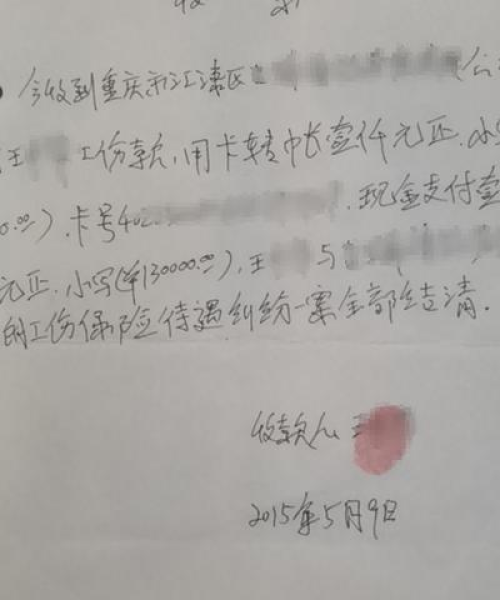 今收到重庆市江津区
王 工伤款,用卡转帐壹仟元正.小写
0.00).卡号40 .现金支付壹
元正.小写(¥130000.00),王 与
的工伤保险待遇纠纷一案全部结清.
收款人 王
2015年5月9日